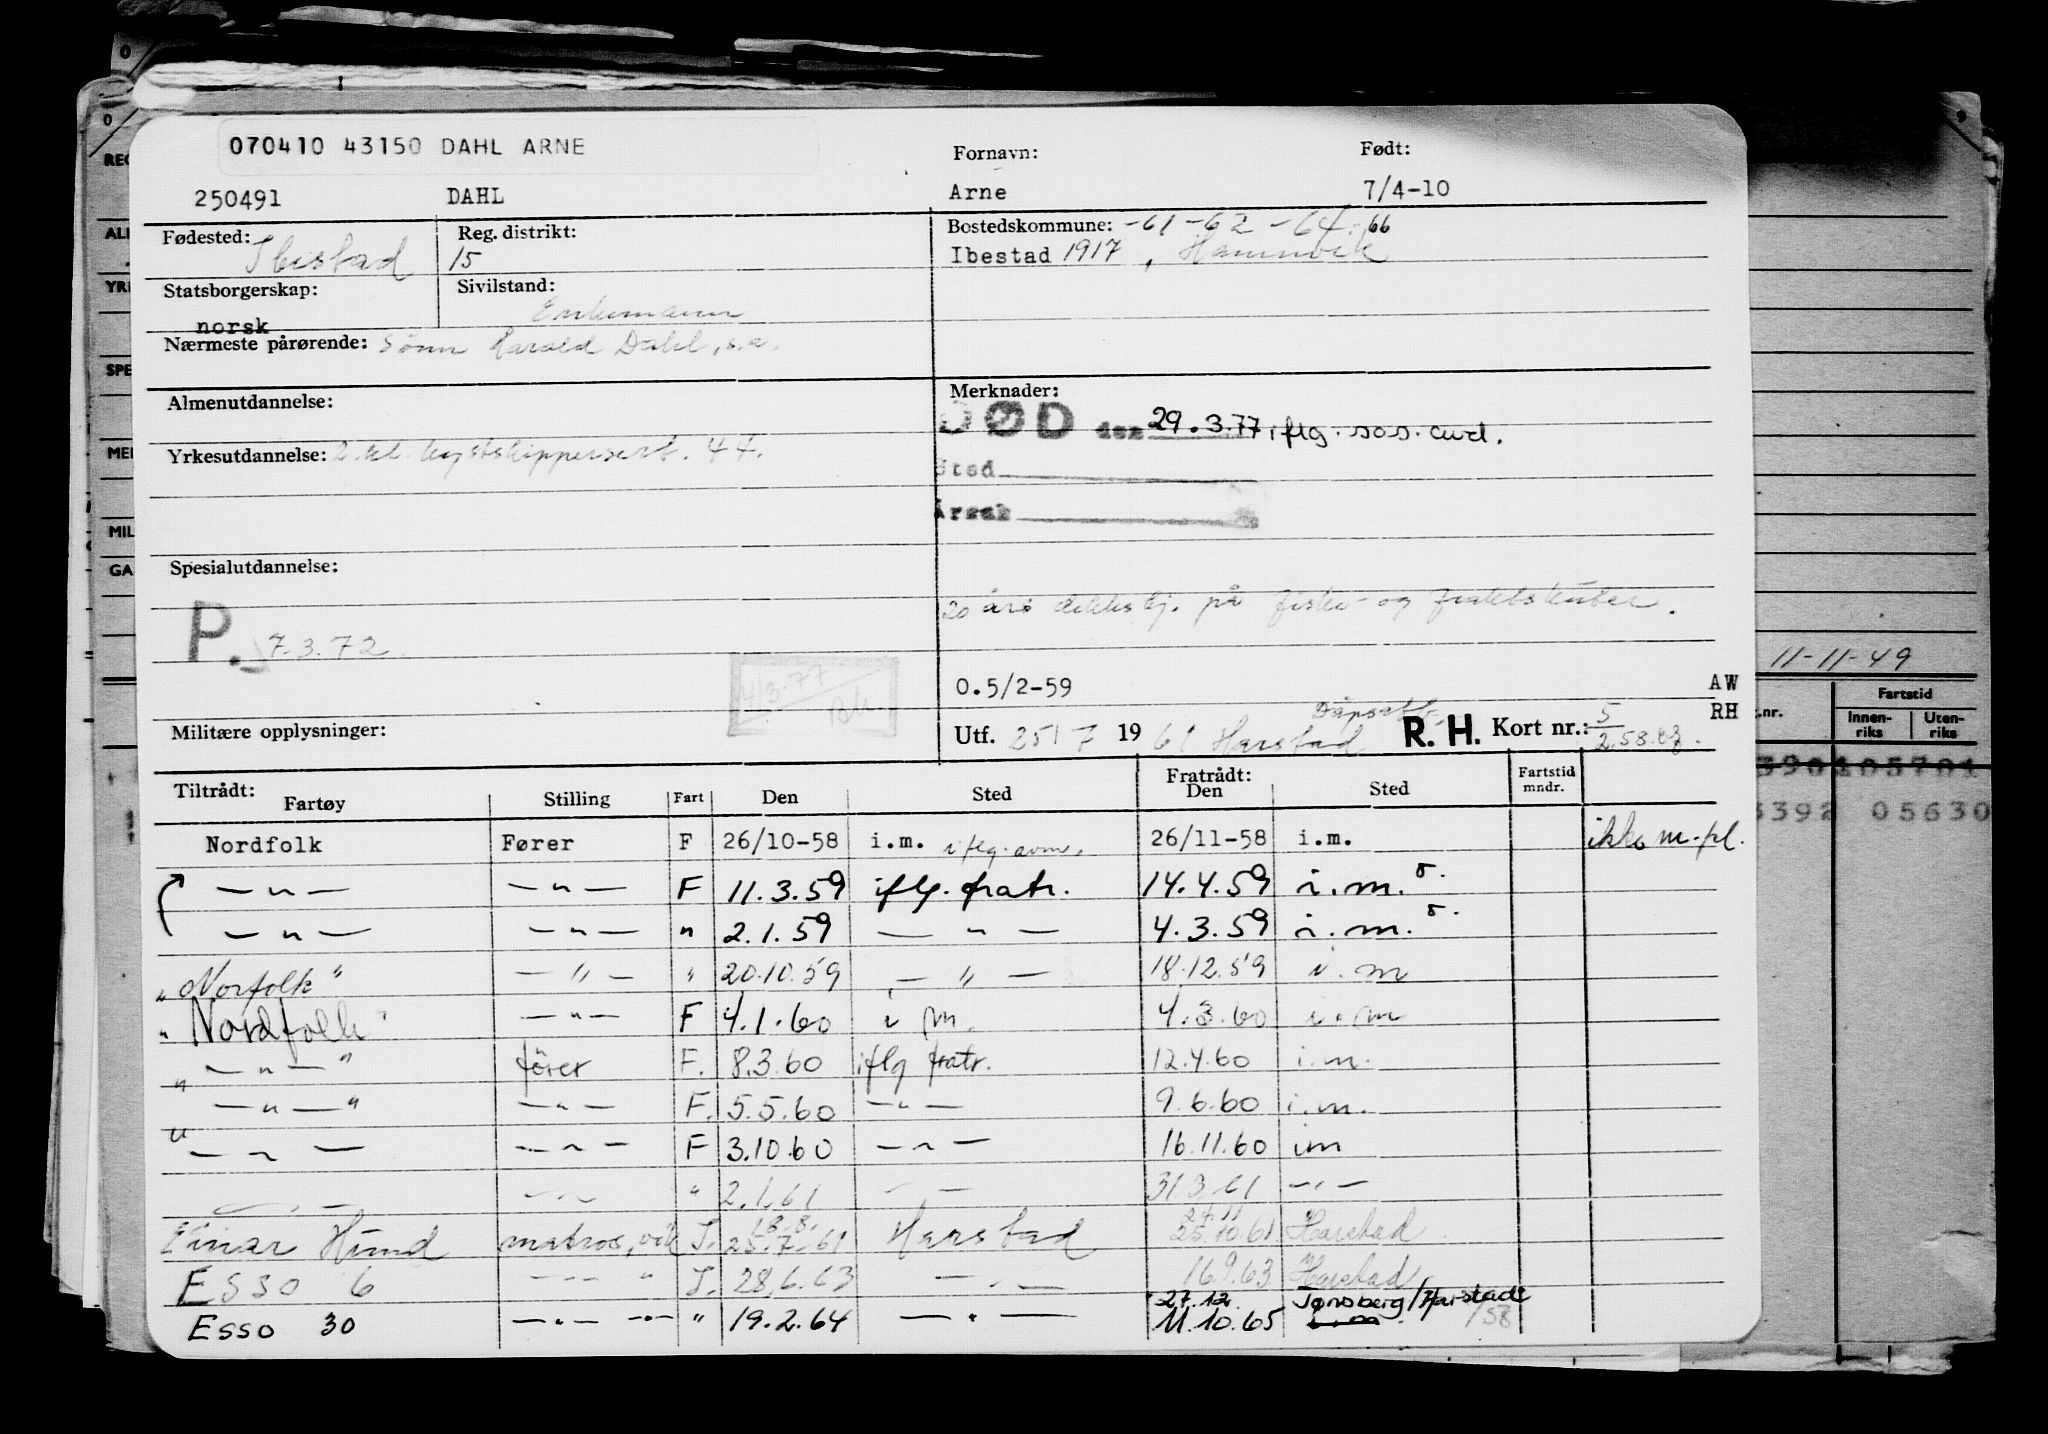 070410 43150 DAHL ARNE
250491 DAHL
Fornavn: Født:
Arne 7/4-10
Fødested: Ibestad
Reg. distrikt: 15
Bostedskommune: -61 -62 -64 -66
Ibestad 1917, Hamnvik
Statsborgerskap: norsk
Sivilstand: Enkemann
Nærmeste pårørende: Sønn Harald Dahl, s.a.
Almenutdannelse:
Yrkesutdannelse: 2. kl. kystskippersert. 44.
Merknader:
DØD den 29.3.77 iflg. sos. avd.
Sted
Årsak
Spesialutdannelse:
P. 7.3.72
20 års dekkstj. på fiske- og fraktskuter.
0.5/2-59
AW
RH
Militære opplysninger:
Utf. 25/7 1961 Harstad R. H. Kort nr.: 5
11-11-49
Fartstid
Innenriks Utenriks
05630
Tiltrådt: Fratrådt:
Fartøy Stilling Fart Den Sted Den Sted Fartstid mndr.
Nordfolk Fører F 26/10-58 i.m. iflg. avm. 26/11-58 i.m. ikke m.pl.
— " — — " — F 11.3.59 iflg. fratr. 14.4.59 i.m.
— " — — " — " 2.1.59 — " — 4.3.59 i.m.
"Norfolk" — " — " 20.10.59 — " — 18.12.59 i.m
"Nordfolk" — " — F 4.1.60 i m. 4.3.60 i.m
" — " — " fører F. 8.3.60 iflg fratr. 12.4.60 i.m.
" — " — " — " — F. 5.5.60 — " — 9.6.60 i.m.
" — " — — " — F 3.10.60 — " — 16.11.60 im
— " — — " — " 2.1.61 — " — 31.3.61 — " —
Einar Hund matros, vik I. 18.8. 25.7.61 Harstad 24.11 25.10.61 Harstad
Esso 6 — " — " I. 28.6.63 — " — 16.9.63 Harstad
Esso 30 — " — — " — " 19.2.64 — " — 27.12. 11.10.65 Tønsberg/Harstad
/58